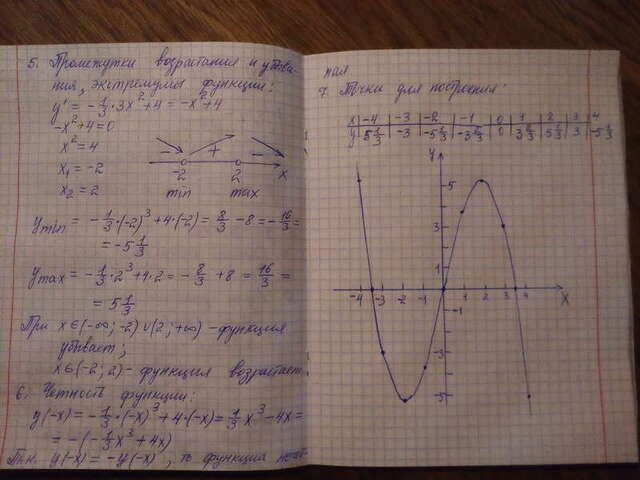 5. Промежутки возрастания и убыва-
ния, экстремумы функции:
y' = -1/3·3x²+4 = -x²+4
-x²+4=0
x²=4
x₁=-2
x₂=2
- + -
-2 2 x
min max
Ymin = -1/3·(-2)³+4·(-2) = 8/3 - 8 = -16/3 =
= -5 1/3
Ymax = -1/3·2³+4·2 = -8/3 + 8 = 16/3 =
= 5 1/3
При x∈(-∞; -2)∪(2; +∞) - функция
убывает;
x∈(-2; 2) - функция возрастает
6. Четность функции:
y(-x) = -1/3·(-x)³+4·(-x) = 1/3x³-4x =
= -(-1/3x³+4x)
Т.к. y(-x) = -y(-x), то функция
7. Точки для построения:
x -4 -3 -2 -1 0 1 2 3 4
y 5 1/3 -3 -5 1/3 -3 2/3 0 3 2/3 5 1/3 3 -5 1/3
y
5
3
1
-4 -3 -2 -1 1 2 3 4 X
-1
-3
-5